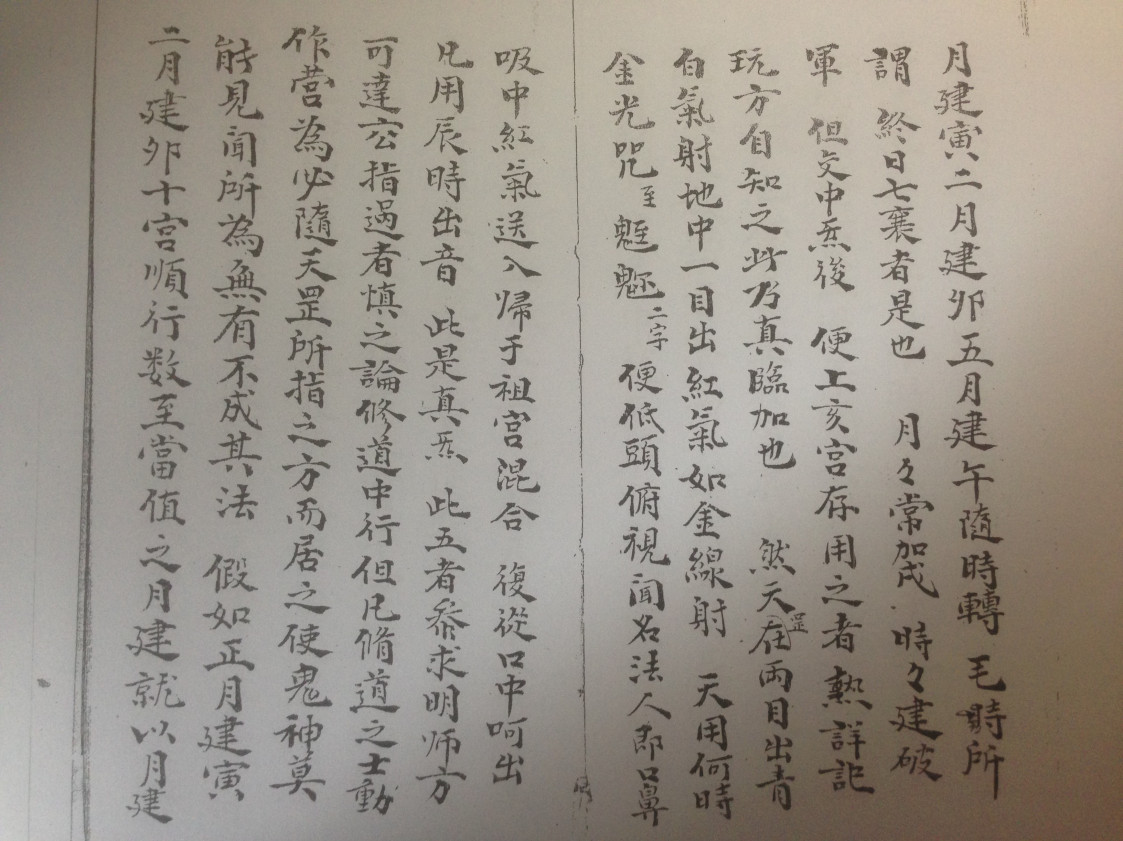 月建寅二月建卯五月建午隨時轉 毛時所
謂 終日七襄者是也 月々常加戌 時々建破
軍 但文中炁後 便上亥宮存用之者熟詳記
玩方自知之此乃真臨加也 然天罡在兩目出青
白氣射地中一目出紅氣如金線射 天用何時
金光咒至魁魒二字便低頭俯視聞名法人即口鼻
吸中紅氣送入歸于祖宮混合 復從口中呵出
凡用辰時出音 此是真炁 此五者叅求明师方
可達玄指過者慎之論修道中行但凡脩道之士動
作營為必隨天罡所指之方而居之使鬼神莫
能見聞所為無有不成其法 假如正月建寅
二月建卯十宮順行数至當值之月建就以月建